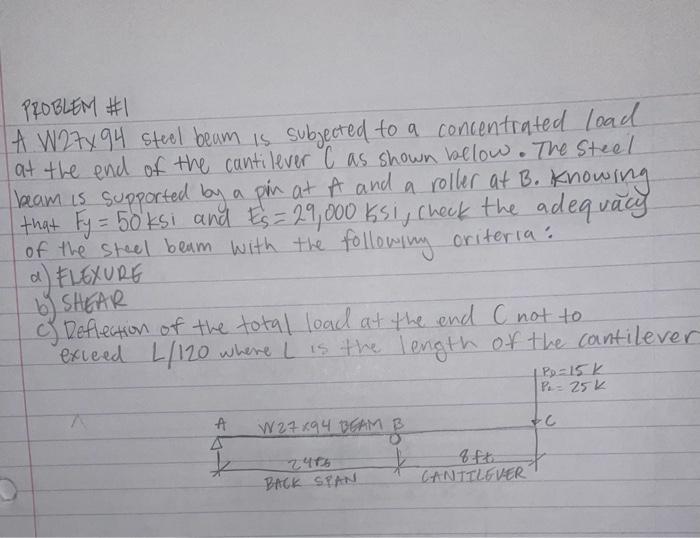 PROBLEM #1
A W27x94 steel beam is subjected to a concentrated load
at the end of the cantilever C as shown below. The steel
beam is supported by a pin at A and a roller at B. Knowing
that Fy = 50 ksi and Es = 29,000 ksi, check the adequacy
of the steel beam with the following criteria:
a) FLEXURE
b) SHEAR
c) Deflection of the total load at the end C not to
exceed L/120 where L is the length of the cantilever
PD = 15 K
PL = 25 K
A W27x94 BEAM B C
24ft 8ft
BACK SPAN CANTILEVER